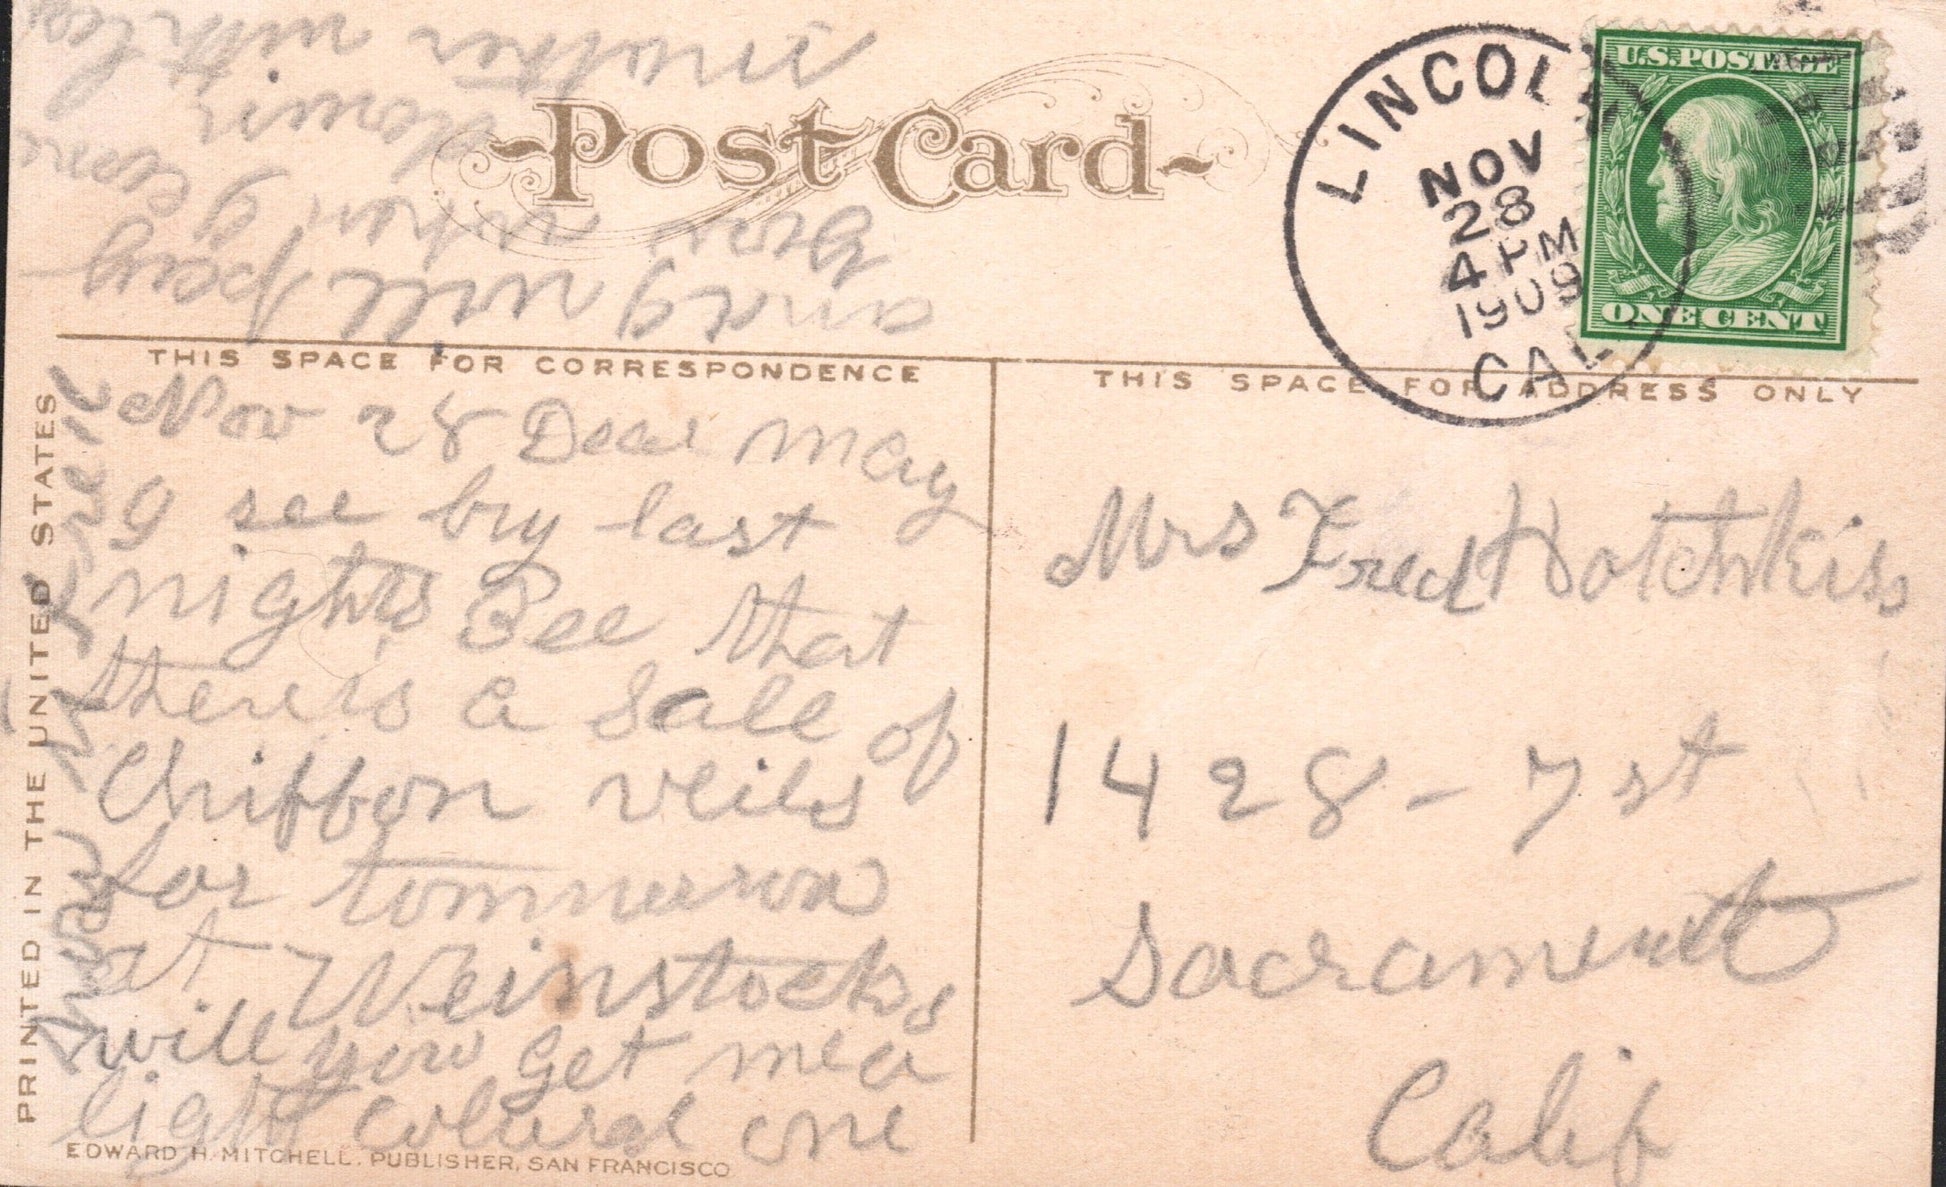 Post Card
U.S. POSTAGE
ONE CENT
LINCOLN
NOV
28
4 PM
1909
CAL
THIS SPACE FOR CORRESPONDENCE
THIS SPACE FOR ADDRESS ONLY
PRINTED IN THE UNITED STATES
Nov 28 Dear May
I see by last
nights Bee that
there is a Sale of
Chiffon veils
for tommorrow
at Weinstocks
will you get me a
light colured one
and I will pay
you when I come
down
mother
Mrs Fred Hotchkiss
1428 - 7 st
Sacramento
Calif
EDWARD H. MITCHELL, PUBLISHER, SAN FRANCISCO